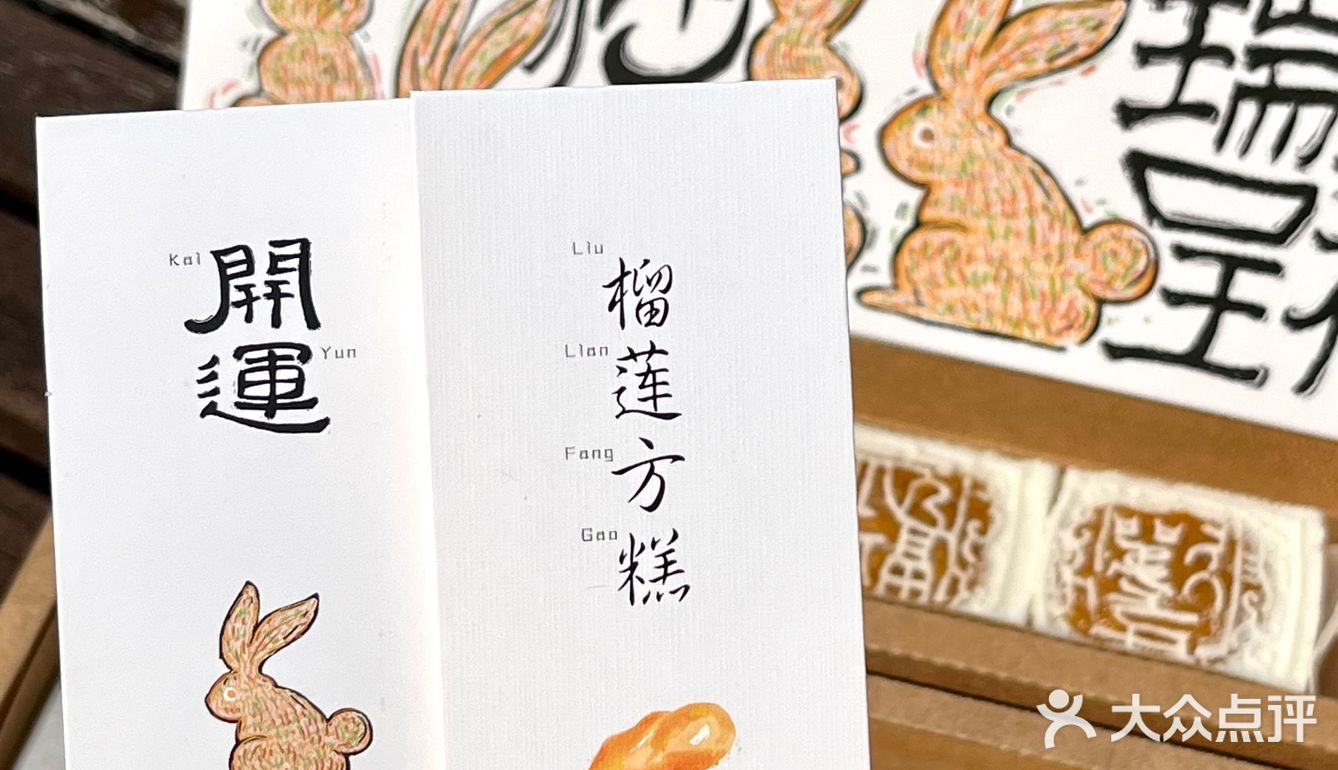 Kai
開
Yun
運
Liu
榴
Lian
莲
Fang
方
Gao
糕
瑞
呈
大众点评